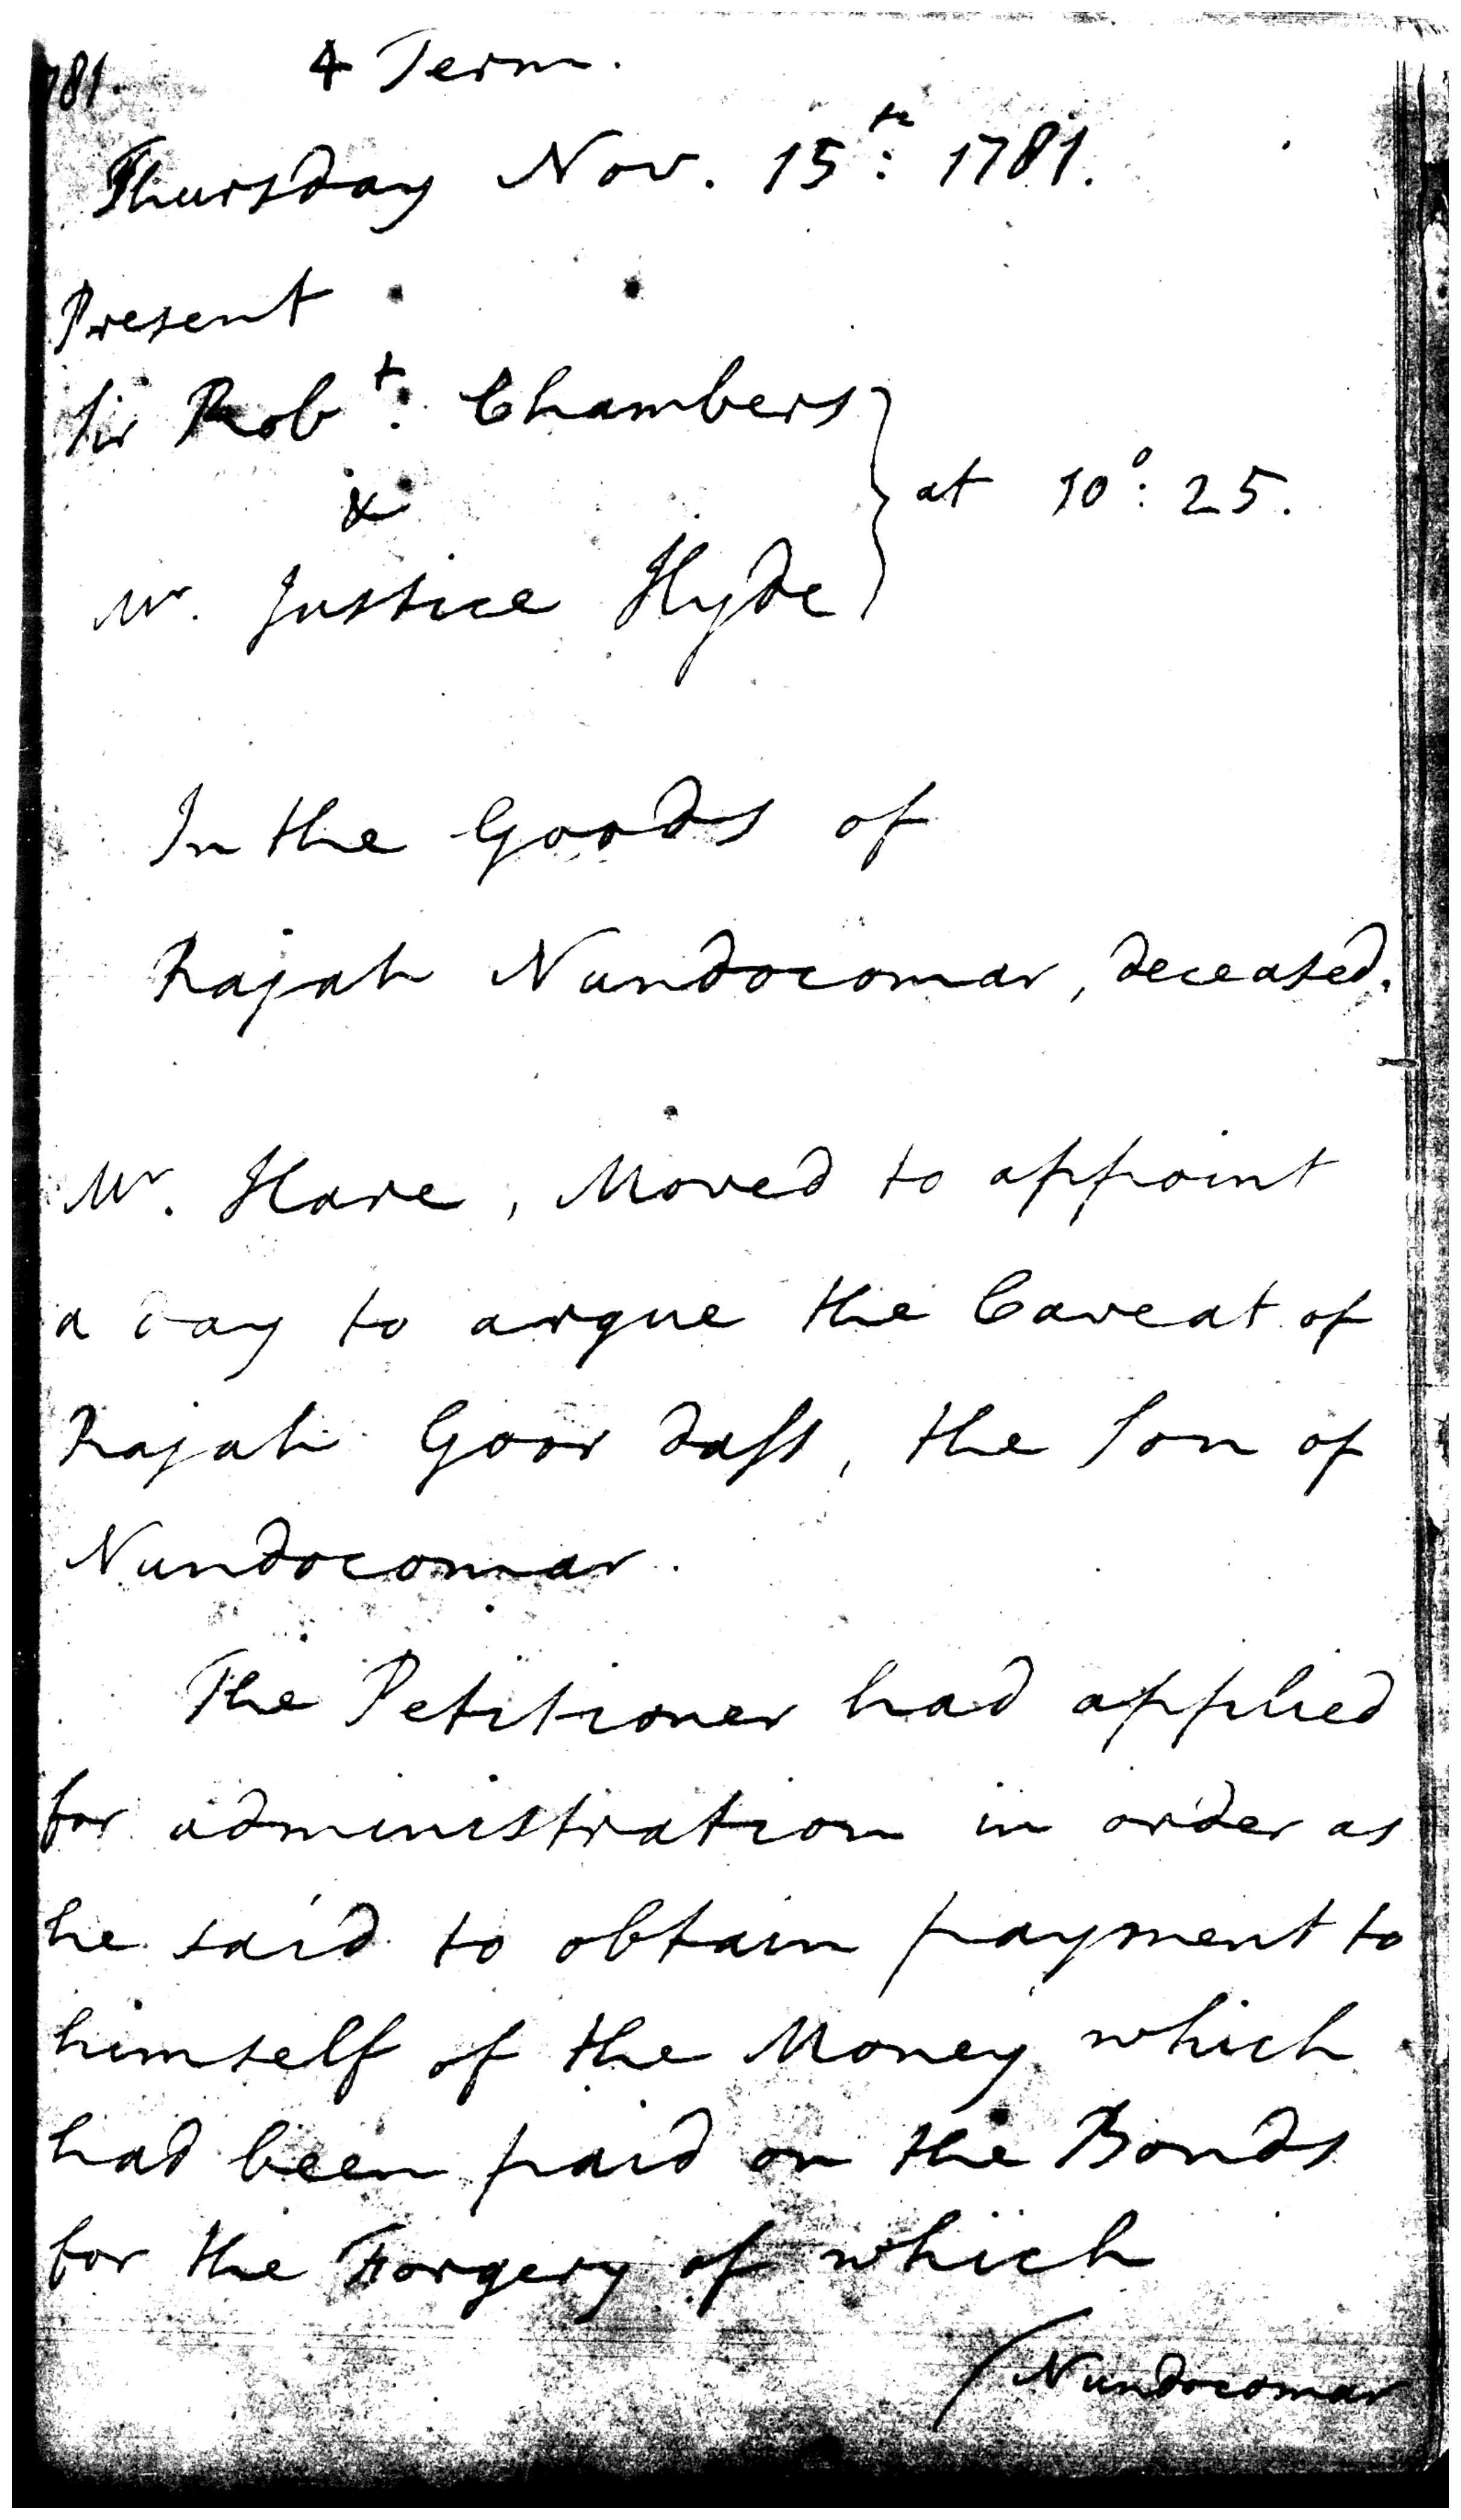 781. 4 Term.
Thursday Nov. 15th: 1781.
Present
Sir Robt: Chambers
&
at 10o: 25.
Mr. Justice Hyde
In the Goods of
Rajah Nundocomar, deceased.
Mr. Hare, Moved to appoint
a day to argue the Caveat of
Rajah Goor dass, the Son of
Nundocomar.
The Petitioner had applied
for administration in order as
he said to obtain payment to
himself of the Money which
had been paid on the Bonds
for the Forgery of which
/Nundocomar